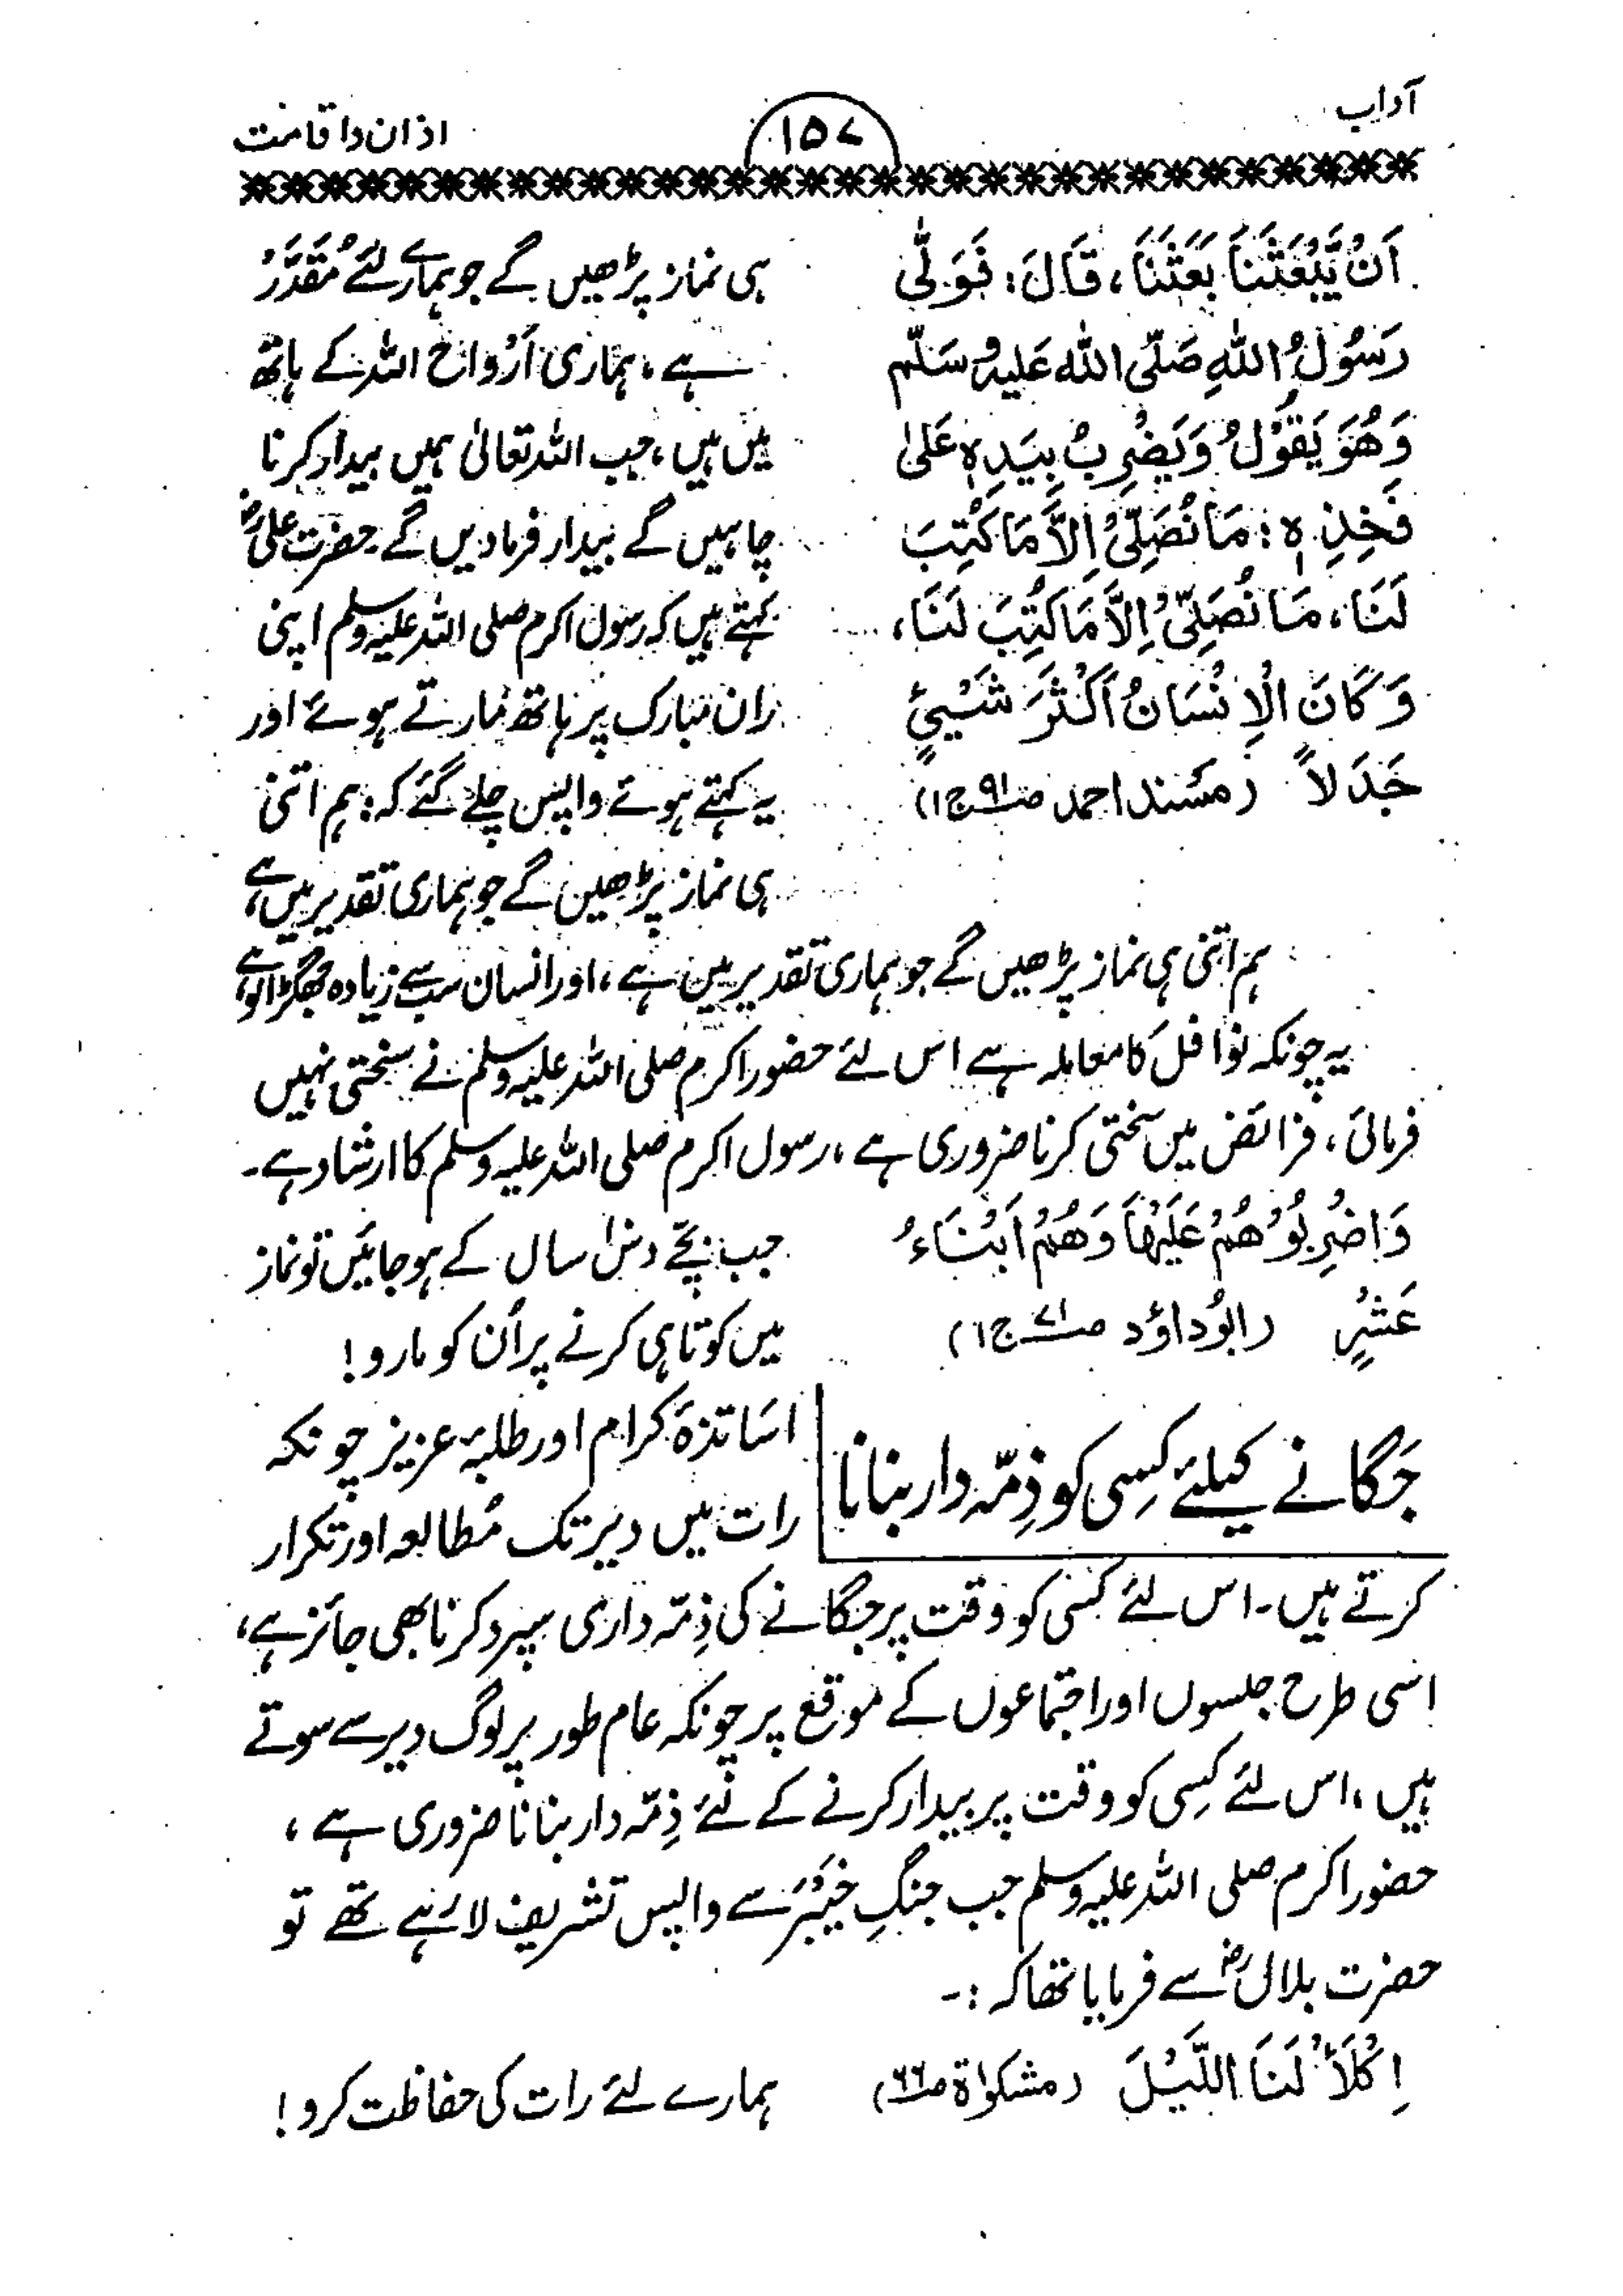 آداب
۱۵۷
اذان واقامت
اَنْ يَّبْعَثَنَا بَعَثَنَا، قَالَ: فَوَلّٰى
رَسُوْلُ اللّٰهِ صَلَّى اللّٰه عَلَيْهِ وَسَلَّم
وَهُوَ يَقُوْلُ وَيَضْرِبُ بِيَدِهٖ عَلىٰ
فَخِذِهٖ: مَا نُصَلِّىْ اِلاَّ مَا كُتِبَ
لَنَا، مَا نُصَلِّىْ اِلاَّ مَا كُتِبَ لَنَا،
وَكَانَ الْاِنْسَانُ اَكْثَرَ شَيْئٍ
جَدَلاً (مسند احمد صـ۹۱ ج۱)
ہی نماز پڑھیں گے جو ہمارے لئے مُقَدَّرْ
ہے، ہماری اَرْواح اللہ کے ہاتھ
میں ہیں، جب اللہ تعالیٰ ہمیں بیدار کرنا
چاہیں گے بیدار فرمادیں گے حضرت علیؓ
کہتے ہیں کہ رسول اکرم صلی اللہ علیہ وسلم اپنی
ران مبارک پر ہاتھ مارتے ہوئے اور
یہ کہتے ہوئے واپس چلے گئے کہ: ہم اتنی
ہی نماز پڑھیں گے جو ہماری تقدیر میں ہے،
ہم اتنی ہی نماز پڑھیں گے جو ہماری تقدیر میں ہے، اور انسان سب سے زیادہ جھگڑالو ہے،
یہ چونکہ نوافل کا معاملہ ہے اس لئے حضور اکرم صلی اللہ علیہ وسلم نے سختی نہیں
فرمائی، فرائض میں سختی کرنا ضروری ہے، رسول اکرم صلی اللہ علیہ وسلم کا ارشاد ہے۔
وَاضْرِبُوْهُمْ عَلَيْهَا وَهُمْ اَبْنَاءُ
عَشْرٍ (ابوُداؤد صـ۷۱ ج۱)
جب بچّے دس سال کے ہوجائیں تو نماز
میں کوتاہی کرنے پر اُن کو مارو!
جَگانے کیلئے کِسِی کو ذِمّہ دار بنانا
اسَاتذۂ کرام اور طلبۂ عزیز چونکہ
رات میں دیر تک مُطالعہ اور تکرار
کرتے ہیں۔ اس لئے کسی کو وقت پر جگانے کی ذِمّہ داری سپرد کرنا بھی جائز ہے،
اسی طرح جلسوں اور اجتماعوں کے موقع پر چونکہ عام طور پر لوگ دیر سے سوتے
ہیں، اس لئے کِسِی کو وقت پر بیدار کرنے کے لئے ذِمّہ دار بنانا ضروری ہے،
حضور اکرم صلی اللہ علیہ وسلم جب جنگِ خَیْبَرْ سے واپس تشریف لارہے تھے تو
حضرت بلالؓ سے فرمایا تھا کہ :۔
اِكْلَأْ لَنَا اللَّيْلَ (مشکوٰۃ صـ۶۶)
ہمارے لئے رات کی حفاظت کرو!